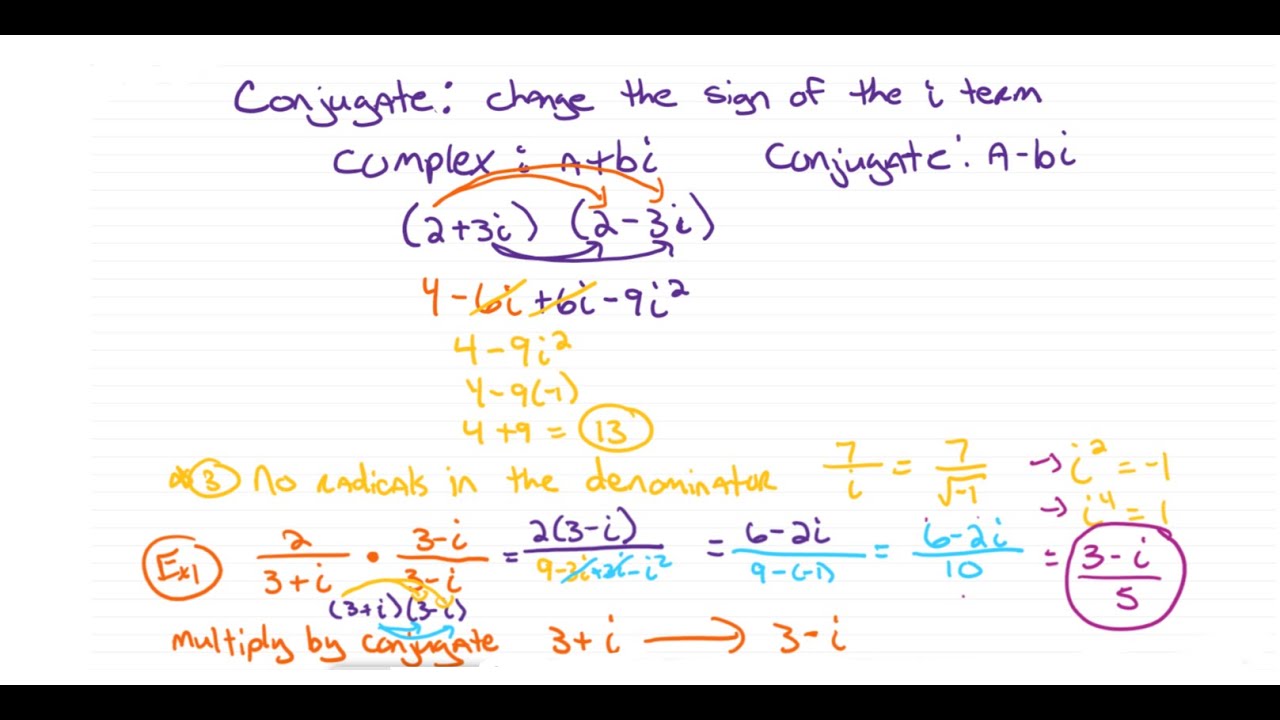 Conjugate: change the sign of the i term
Complex: A+bi Conjugate: A-bi
(2+3i) (2-3i)
4-6i+6i-9i²
4-9i²
4-9(-1)
4+9 = 13
*3 No radicals in the denominator 7/i = 7/√-1 → i² = -1
→ i⁴ = 1
Ex1 2/(3+i) • (3-i)/(3-i) = 2(3-i)/(9-3i+3i-i²) = (6-2i)/(9-(-1)) = (6-2i)/10 = (3-i)/5
(3+i)(3-i)
multiply by conjugate 3+i → 3-i